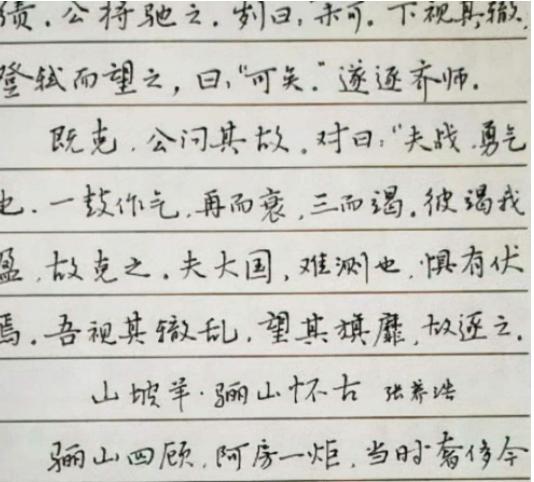 绩。公将驰之。刿曰：未可。下视其辙，
登轼而望之，曰："可矣。"遂逐齐师。
既克，公问其故。对曰："夫战，勇气
也。一鼓作气，再而衰，三而竭。彼竭我
盈，故克之。夫大国，难测也，惧有伏
焉。吾视其辙乱，望其旗靡，故逐之。
山坡羊·骊山怀古 张养浩
骊山四顾，阿房一炬，当时奢侈今